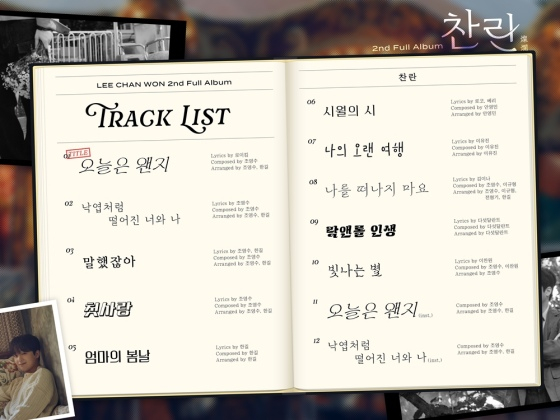 2nd Full Album 찬란
燦爛
LEE CHAN WON 2nd Full Album
TRACK LIST
01 TITLE
오늘은 왠지
Lyrics by 로이킴
Composed by 조영수
Arranged by 조영수, 한길
02 낙엽처럼
떨어진 너와 나
Lyrics by 조영수
Composed by 조영수
Arranged by 조영수, 한길
03 말했잖아
Lyrics by 조영수, 한길
Composed by 조영수, 한길
Arranged by 조영수, 한길
04 첫사랑
Lyrics by 조영수
Composed by 조영수
Arranged by 조영수, 한길
05 엄마의 봄날
Lyrics by 한길
Composed by 한길
Arranged by 조영수, 한길
찬란
06 시월의 시
Lyrics by
Composed by
Arranged by
07 나의 오랜 여행
Lyrics by 이유진
Composed by 이유진
Arranged by 이유진
08 나를 떠나지 마요
Lyrics by 김이나
Composed by 조영수, 이규형
Arranged by 조영수, 이규형,
09 락앤롤 인생
Lyrics by 다섯달란트
Composed by 다섯달란트
Arranged by 다섯달란트
10 빛나는 별
Lyrics by 이찬원
Composed by 조영수, 이찬원
Arranged by 조영수
11 오늘은 왠지 (inst.)
Composed by 조영수
Arranged by 조영수, 한길
12 낙엽처럼
떨어진 너와 나 (inst.)
Composed by 조영수
Arranged by 조영수, 한길